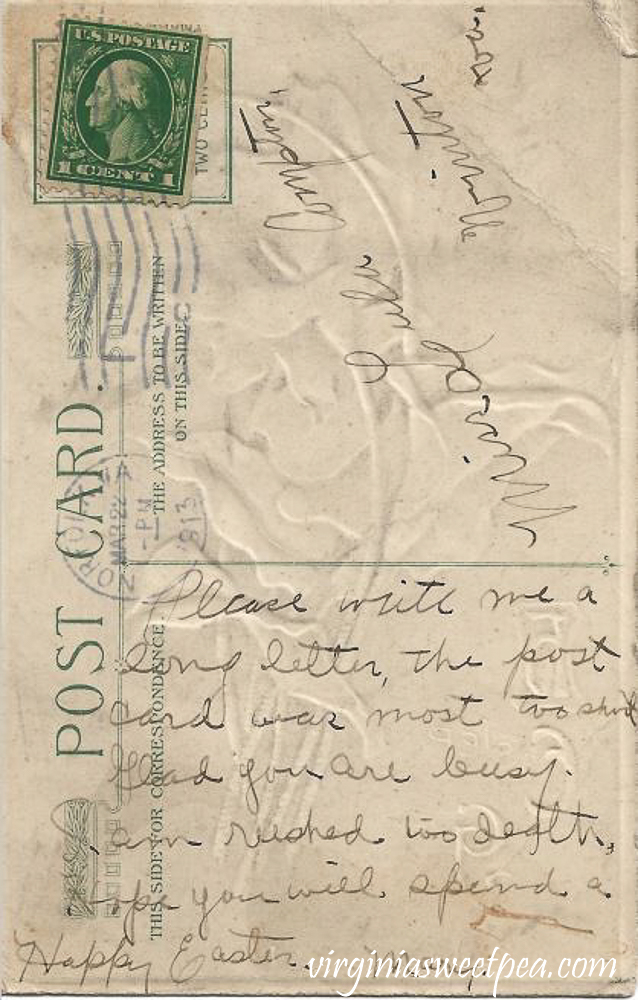 U.S. POSTAGE
1 CENT 1
TWO CEN
POST CARD.
THE ADDRESS TO BE WRITTEN
ON THIS SIDE
THIS SIDE FOR CORRESPONDENCE
MAR 22
-PM
1913
Miss Lula
Compton,
Please write me a
long letter, the post
card was most too short
Glad you are busy.
I am rushed too death,
Hope you will spend a
Happy Easter.
virginiasweetpea.com